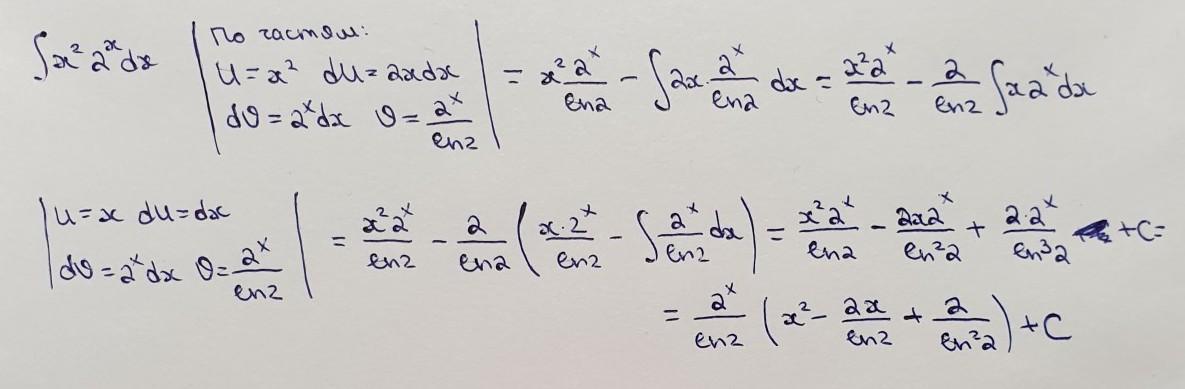 ∫x² 2ˣdx | По частям: u = x² du = 2xdx dv = 2ˣdx v = 2ˣ/ln2 | = x² 2ˣ/ln2 − ∫2x · 2ˣ/ln2 dx = x²2ˣ/ln2 − 2/ln2 ∫x2ˣdx
| u = x du = dx dv = 2ˣdx v = 2ˣ/ln2 | = x²2ˣ/ln2 − 2/ln2 (x·2ˣ/ln2 − ∫2ˣ/ln2 dx) = x²2ˣ/ln2 − 2x2ˣ/ln²2 + 2·2ˣ/ln³2 + C =
= 2ˣ/ln2 (x² − 2x/ln2 + 2/ln²2) + C